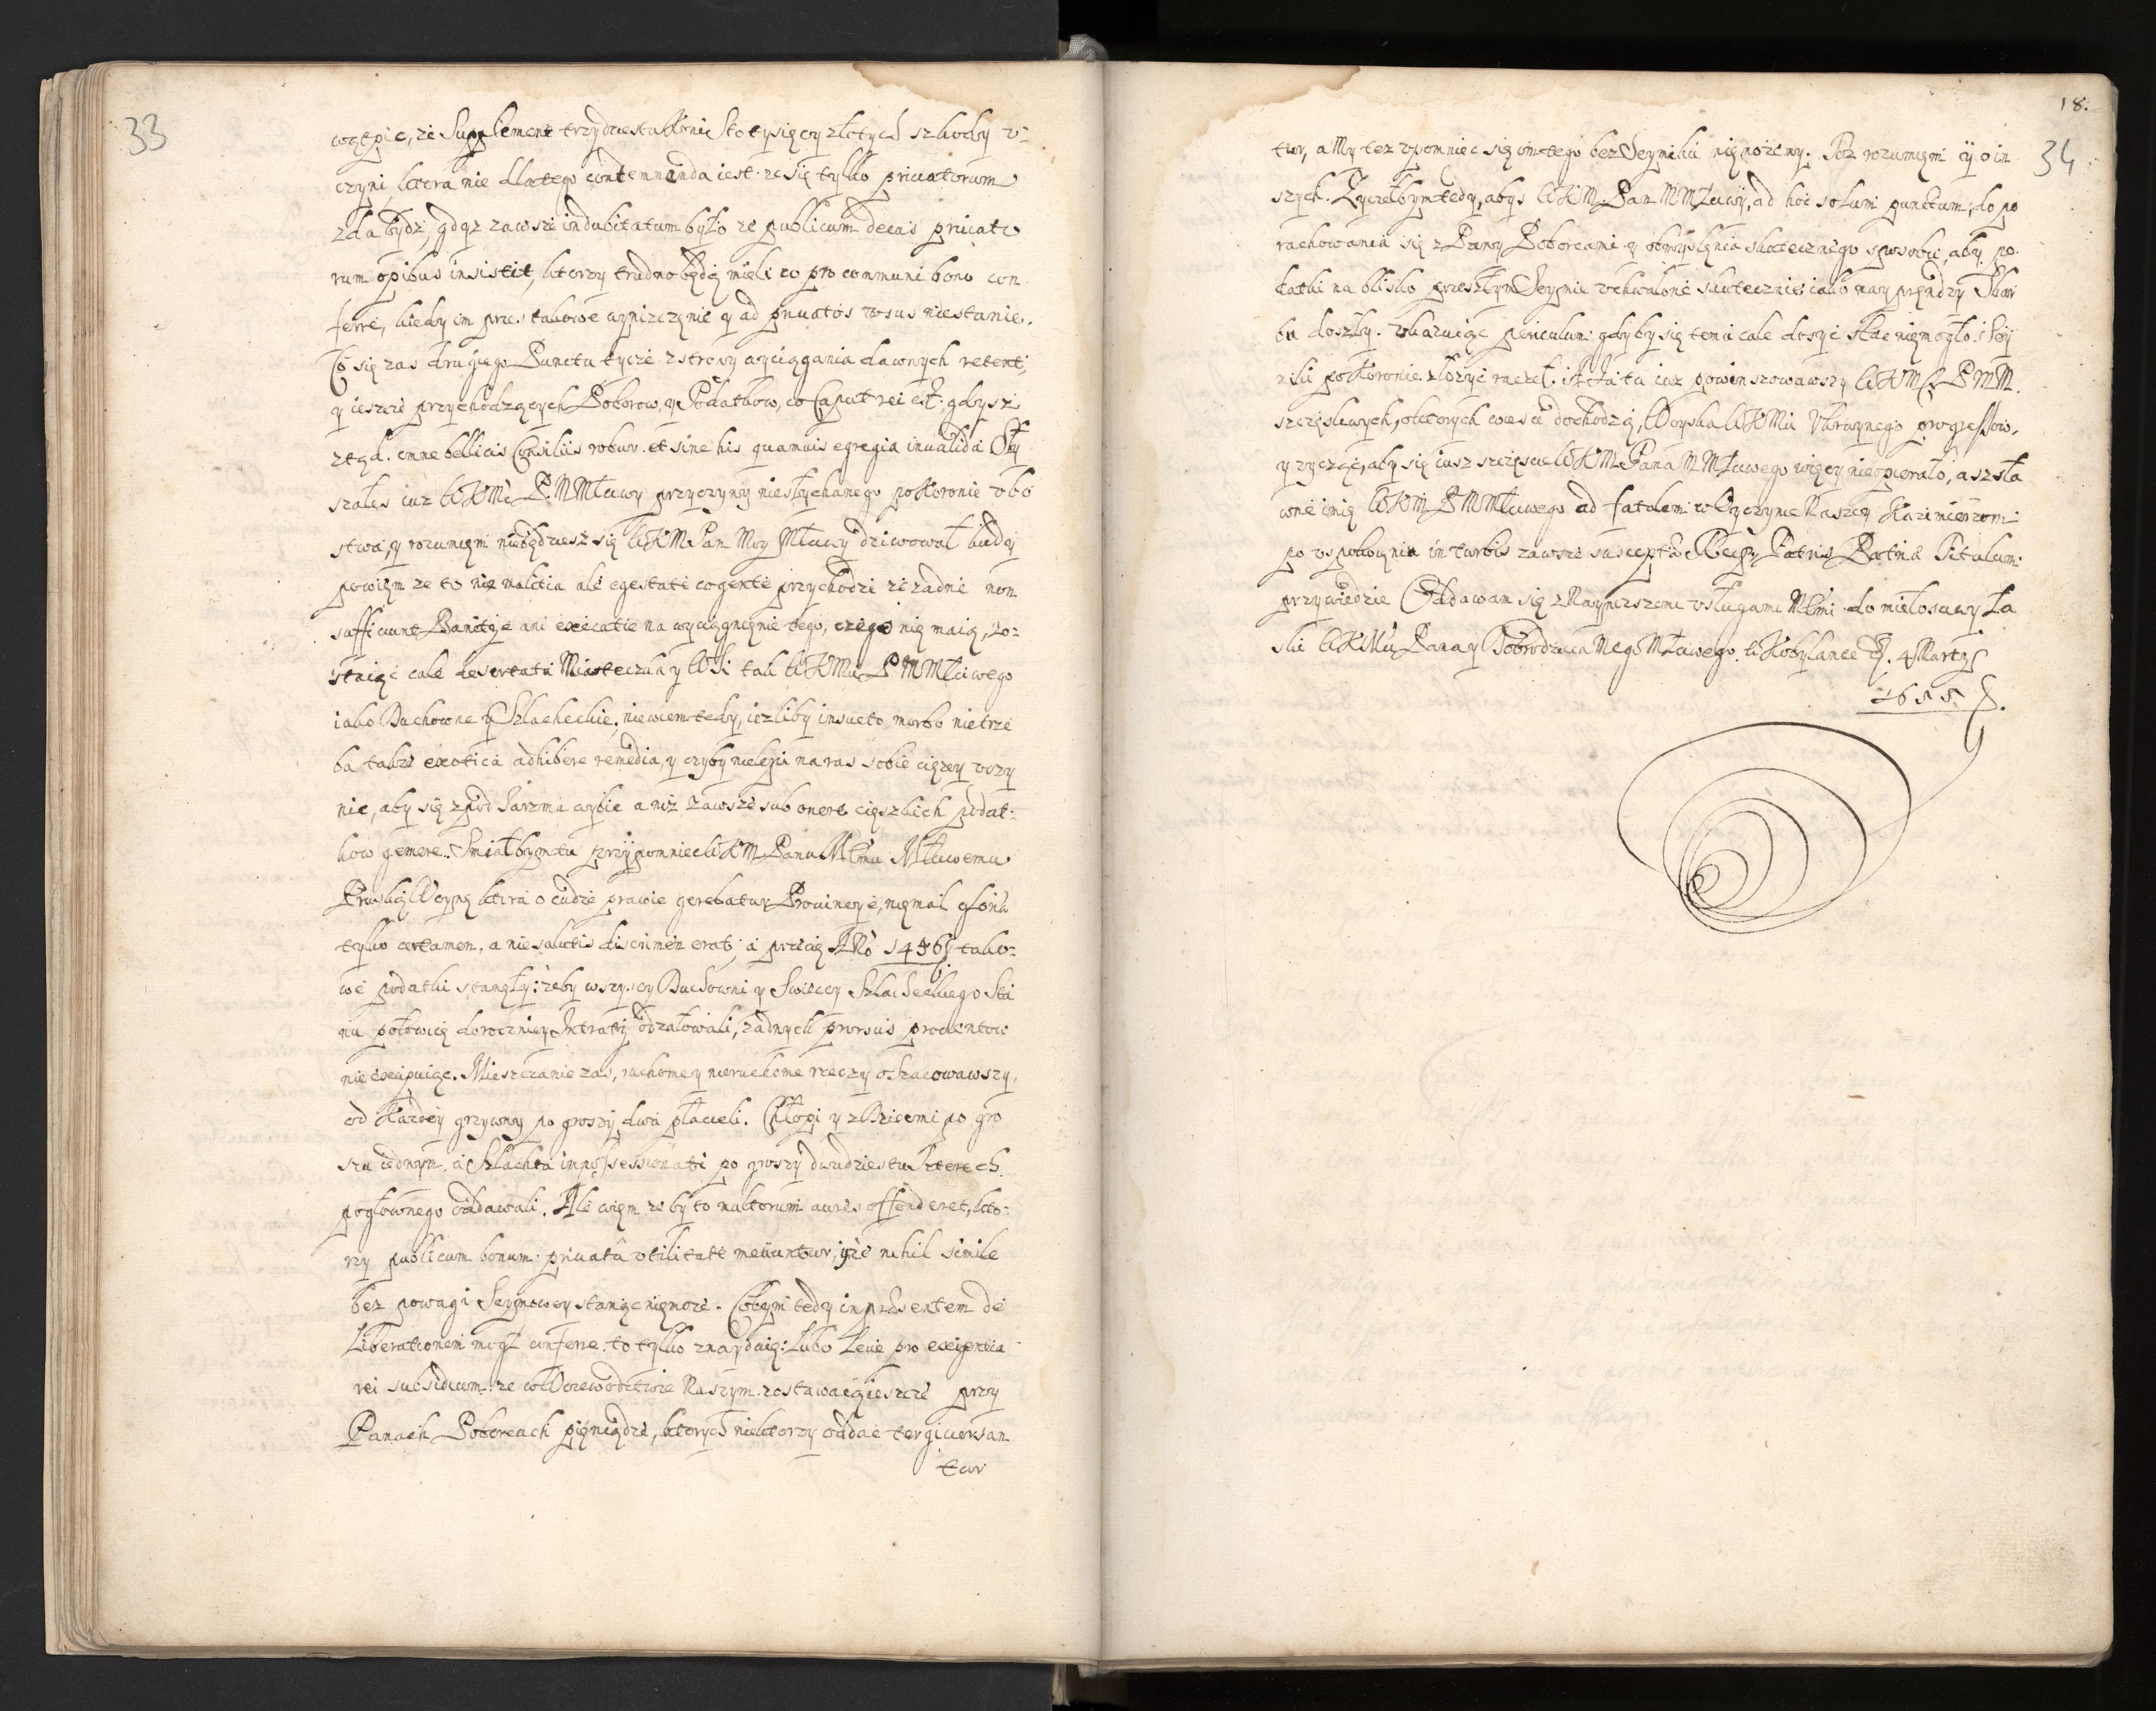 33
wątpię, że Supplement trzydziestu kroni Sto tysięcy złotych szkody v=
czyni ktora nie dlatego contemnenda iest. ze się tylko priuatorum
zda bydź, gdyż zawsze indubitatum było ze publicum decus priuato
rum opibus insistit, ktorzy trudno będą mieli co pro communi bono con
ferre, kiedy im przez takowe wyniszczenie y ad priuatos vsus niestanie.
Co się zas drugiego Punctu tycze z strony wyciągania dawnych retent,
y ieszcze przychodzących Poborow, y Podatkow, co Caput rei est. gdysz
ztąd. omne bellicis Consiliis robur. et sine his quamuis egregia inualida Sły
szałes iuz WKMć PMMłciwy przyczyny niesłychanego po Koronie vbo
stwa, y rozumiem nie będziesz się WKM Pan Moy Młciwy dziwował kiedy
powiem ze to nie malitia ale egestate cogente przychodzi ze zadne non
sufficiunt Banitye ani exekutie na wyciągnienie tego, czego nie maią, zo=
staiąc cale desertata Miasteczka y Wsi tak WKMci PMMłciwego
iako Duchowne y Szlacheckie, niewiem tedy, iezliby insueto morbo nietrze
ba takze exotica adhibere remedia, y czyby nielżei na raz sobie ciężey vczy
nic, aby się z pod Jarzma wybic a niz zawsze sub onere cięszkich podat=
kow gemere. Smiałbym tu przypomniec WKM Panu Memu Młciwemu
Pruską Woynę ktora o cudze prawie gerebatur Prouincye, niemal gloriae
tylko certamen, a nie salutis discrimen erat; a przecię Ano 1456 tako=
we podatki stanęły: żeby wszyscy Duchowni y Swieccy Szlacheckiego Sta
nu połowicę doroczney Intraty odzałowali, żadnych prorsus prouentow
nie excipuiąc. Mieszczanie zas, ruchome y nieruchome rzeczy oszacowawszy,
od Kazdey grzywny po groszy dwa płacieli. Chłopi y z Dziecmi po gro
szu iednym, a Szlachta impossessionati po groszy dwudziestu Szterech
pogłownego oddawali. Ale wiem ze by to multorum aures offenderet, kto=
rzy publicum bonum priuata vtilitate metiuntur, yze nihil simile
bez powagi Seymowey stanąc niemoże. Cobym tedy in praesentem de
liberationem mogł conferre. to tylko znayduię: Lubo leue pro exigentia
rei subsidium. ze w Woiewodztwie Naszym zostawaią ieszcze przy
Panach Poborcach pieniądze, ktorych niektorzy oddac tergiuersan
tur
18.
34
tur, a My tez vpomniec się o to tego bez Seymiku nie możemy. Toz rozumiem y o in
szych. Życzełbym tedy, abys WKM Pan MMłciwy, ad hoc solum punctum, do po
rachowania się z Pany Poborcami y obmyslenia skutecznego sposobu, aby po
datki na blisko przeszłym Seymie vchwalone skutecznie iako nayprędzey Skar
bu doszły. vkazuiąc periculum: gdyby się temu cale dosyc stac niemogło. Sey
miki po Koronie złożyc raczeł. ist Ja tu iuz powinszowawszy WKMci PMM.
szczęsliwych, o ktorych wiesci dochodzą, Woyska WKMci Vkrainnego progressow,
y zycząc, aby się iusz szczęscie WKM Pana MMłciwego więcy nie opierało, a szła
wne imię WKM PMMłciwego ad fatalem w Oyczyznie Naszey Kazimierzom
po vspokoieniu in turbis zawsze suscepta Reipce Patris Patriae Titulum
przywiedzie Oddawam się z Nayniższemi vsługami Memi do miełosciwey Ła
ski WKMci Pana y Dobrodzieia Mego Młciwego. w Kobylance D. 4 Martij
1655.